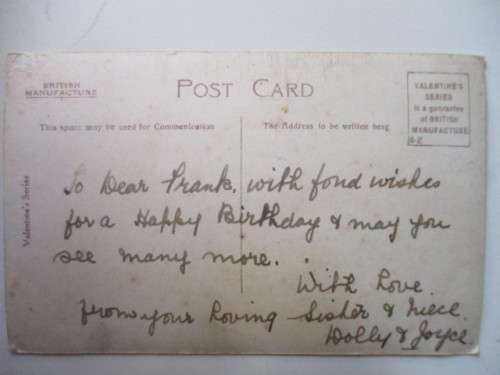 BRITISH
MANUFACTURE
POST CARD
VALENTINE'S
SERIES
is a guarantee
of BRITISH
MANUFACTURE
This space may be used for Communication
The Address to be written here
Valentine's Series
To Dear Frank, with fond wishes
for a Happy Birthday & may you
see many more.
With Love.
from your loving Sister & Niece.
Dolly & Joyce